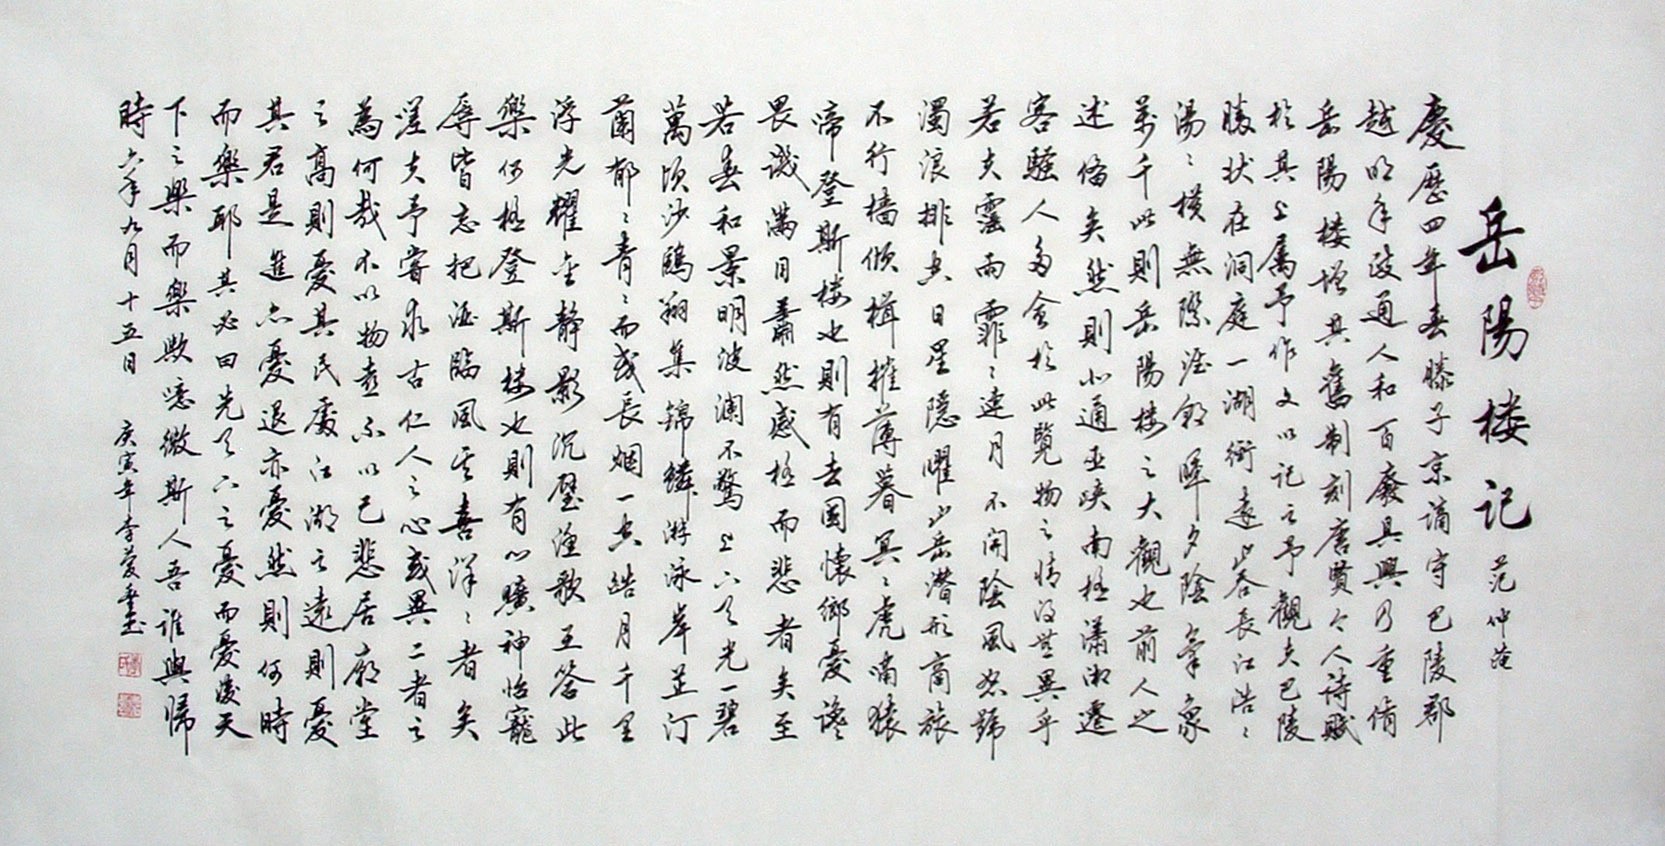 岳陽楼记 范仲淹
慶歷四年春滕子京谪守巴陵郡
越明年政通人和百廢具興乃重脩
岳陽楼增其舊制刻唐賢今人诗賦
於其上属予作文以记之予觀夫巴陵
勝状在洞庭一湖衔遠山吞長江浩〻
湯〻横無際涯朝暉夕陰氣象
萬千此則岳陽楼之大觀也前人之
述俻矣然則北通巫峡南极潇湘遷
客騷人多會於此覽物之情得無異乎
若夫霪雨霏〻連月不開陰風怒號
濁浪排空日星隐曜山岳潜形商旅
不行樯倾楫摧薄暮冥〻虎啸猿
啼登斯楼也則有去國懷鄉憂谗
畏讥满目蕭然感极而悲者矣至
若春和景明波澜不驚上下天光一碧
萬顷沙鷗翔集锦鱗游泳岸芷汀
蘭郁〻青〻而或長烟一空皓月千里
浮光耀金静影沉璧渔歌互答此
樂何极登斯楼也則有心曠神怡寵
辱皆忘把酒臨風其喜洋〻者矣
嗟夫予嘗求古仁人之心或異二者之
為何哉不以物喜不以己悲居廟堂
之高則憂其民處江湖之遠則憂
其君是進亦憂退亦憂然則何時
而樂耶其必曰先天下之憂而憂後天
下之樂而樂歟噫微斯人吾谁與歸
時六年九月十五日 庚寅年李菱書